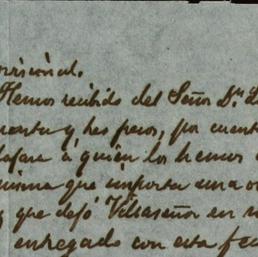 Hemos recibido del Señor Dn.
y tres pesos, por cuent
á quien los hemos
misma que importa una o
y que dejó Villaseñor en
entregado con esta fec